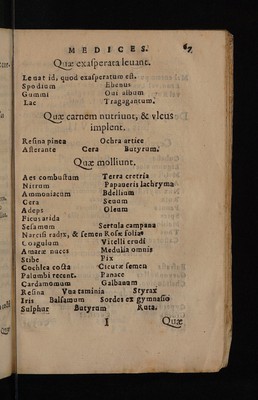 MEDICES. 67
Quæ exasperata leuant.
Leuat id, quod exasperatum est.
Spodium Ebenus
Gummi Oui album
Lac Tragagantum.
Quæ carnem nutriunt, & vlcus
implent.
Resina pinea Ochra attice
Asterante Cera Butyrum.
Quæ molliunt.
Aes combustum Terra eretria
Nitrum Papaueris lachryma
Ammoniacum Bdellium
Cera Seuum
Adeps Oleum
Ficus arida
Sesamum Sertula campana
Narcissi radix, & semen Rosæ folia
Coagulum Vitelli crudi
Amaræ nuces Medulla omnis
Stibe Pix
Cochlea cocta Cicutæ semen
Palumbi recent. Panace
Cardamomum Galbanum
Resina Vua taminia Styrax
Iris Balsamum Sordes ex gymnasio
Sulphur Butyrum Ruta.
I Quæ